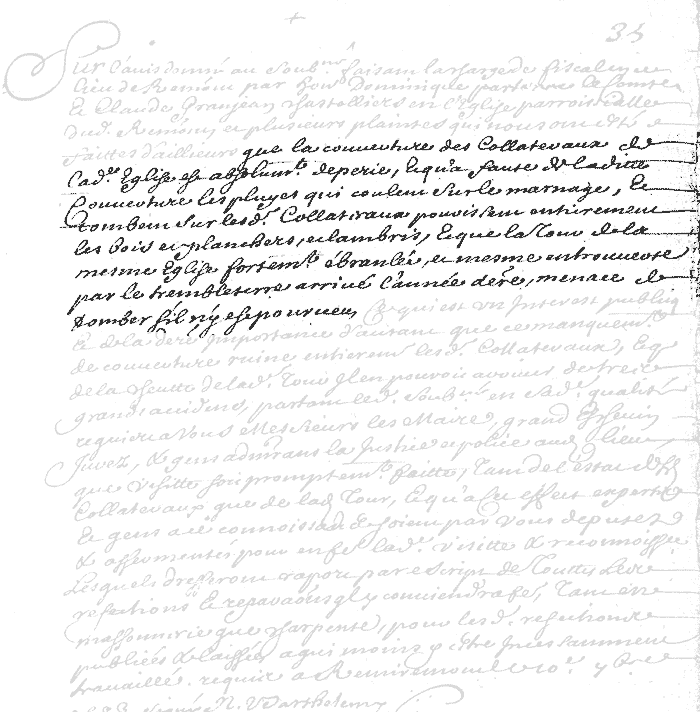 35
Sur l'avis donné au Soub.né faisant la charge de fiscal en ce
lieu de Remiremont par Dominique
et Claude Granjean Chastolliers en l'Eglise parroichialle
dud. Remiremont, et plusieurs plaintes qui
faittes d'ailleurs que la couverture des Collateraux de
lad.e Eglise est absolum.t deperie, et qu'a faute de laditte
Couverture les pluyes qui coulent sur le marnage, et
tombent sur lesd. Collateraux pourissent entierement
les bois et planchers, et lambris, et que la Tour de la
mesme Eglise fortem.t ebranlée, et mesme entrouverte
par le trembleterre arrivé l'année dére, menace de
tomber s'il n'y est pourveu, Ce qui est un Interest publiq
et de la dére importance d'autant que ce manquem.t
de couverture ruine entierem.t lesd. Collateraux, et q
de la cheutte de lad. Tour il en pouroit avenir de tres
grands accidens, partant led. Soub.né en sad.e qualité
requiert a Vous Messieurs les Maire, grand Eschevin
Jurez, et gens adm̄rans la Justice et police aud. lieu,
que visitte soit promptem.t faitte, tant de l'estat desd.
Collateraux que de lad. Tour, et qu'a cet effect experts
et gens a ce connoissans soient par vous deputez
et assermentés pour en fe lad.e visitte et reconnoissce
Lesquels dresseront raport par escript de touttes les
refections et reparaons qu'il y conviendra fe, tant en
massonnerie que charpente, pour lesd. refections
publiés et laissées a qui moins y estre incessamment
travaillé. requis a Remiremont le 10.e
signé N. Barthelemy